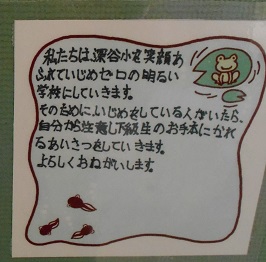 私たちは、深谷小を笑顔あ
ふれていじめゼロの明るい
学校にしていきます。
そのために、いじめをしている人がいたら、
自分から注意し下級生のお手本になれ
るあいさつをしていきます。
よろしくおねがいします。